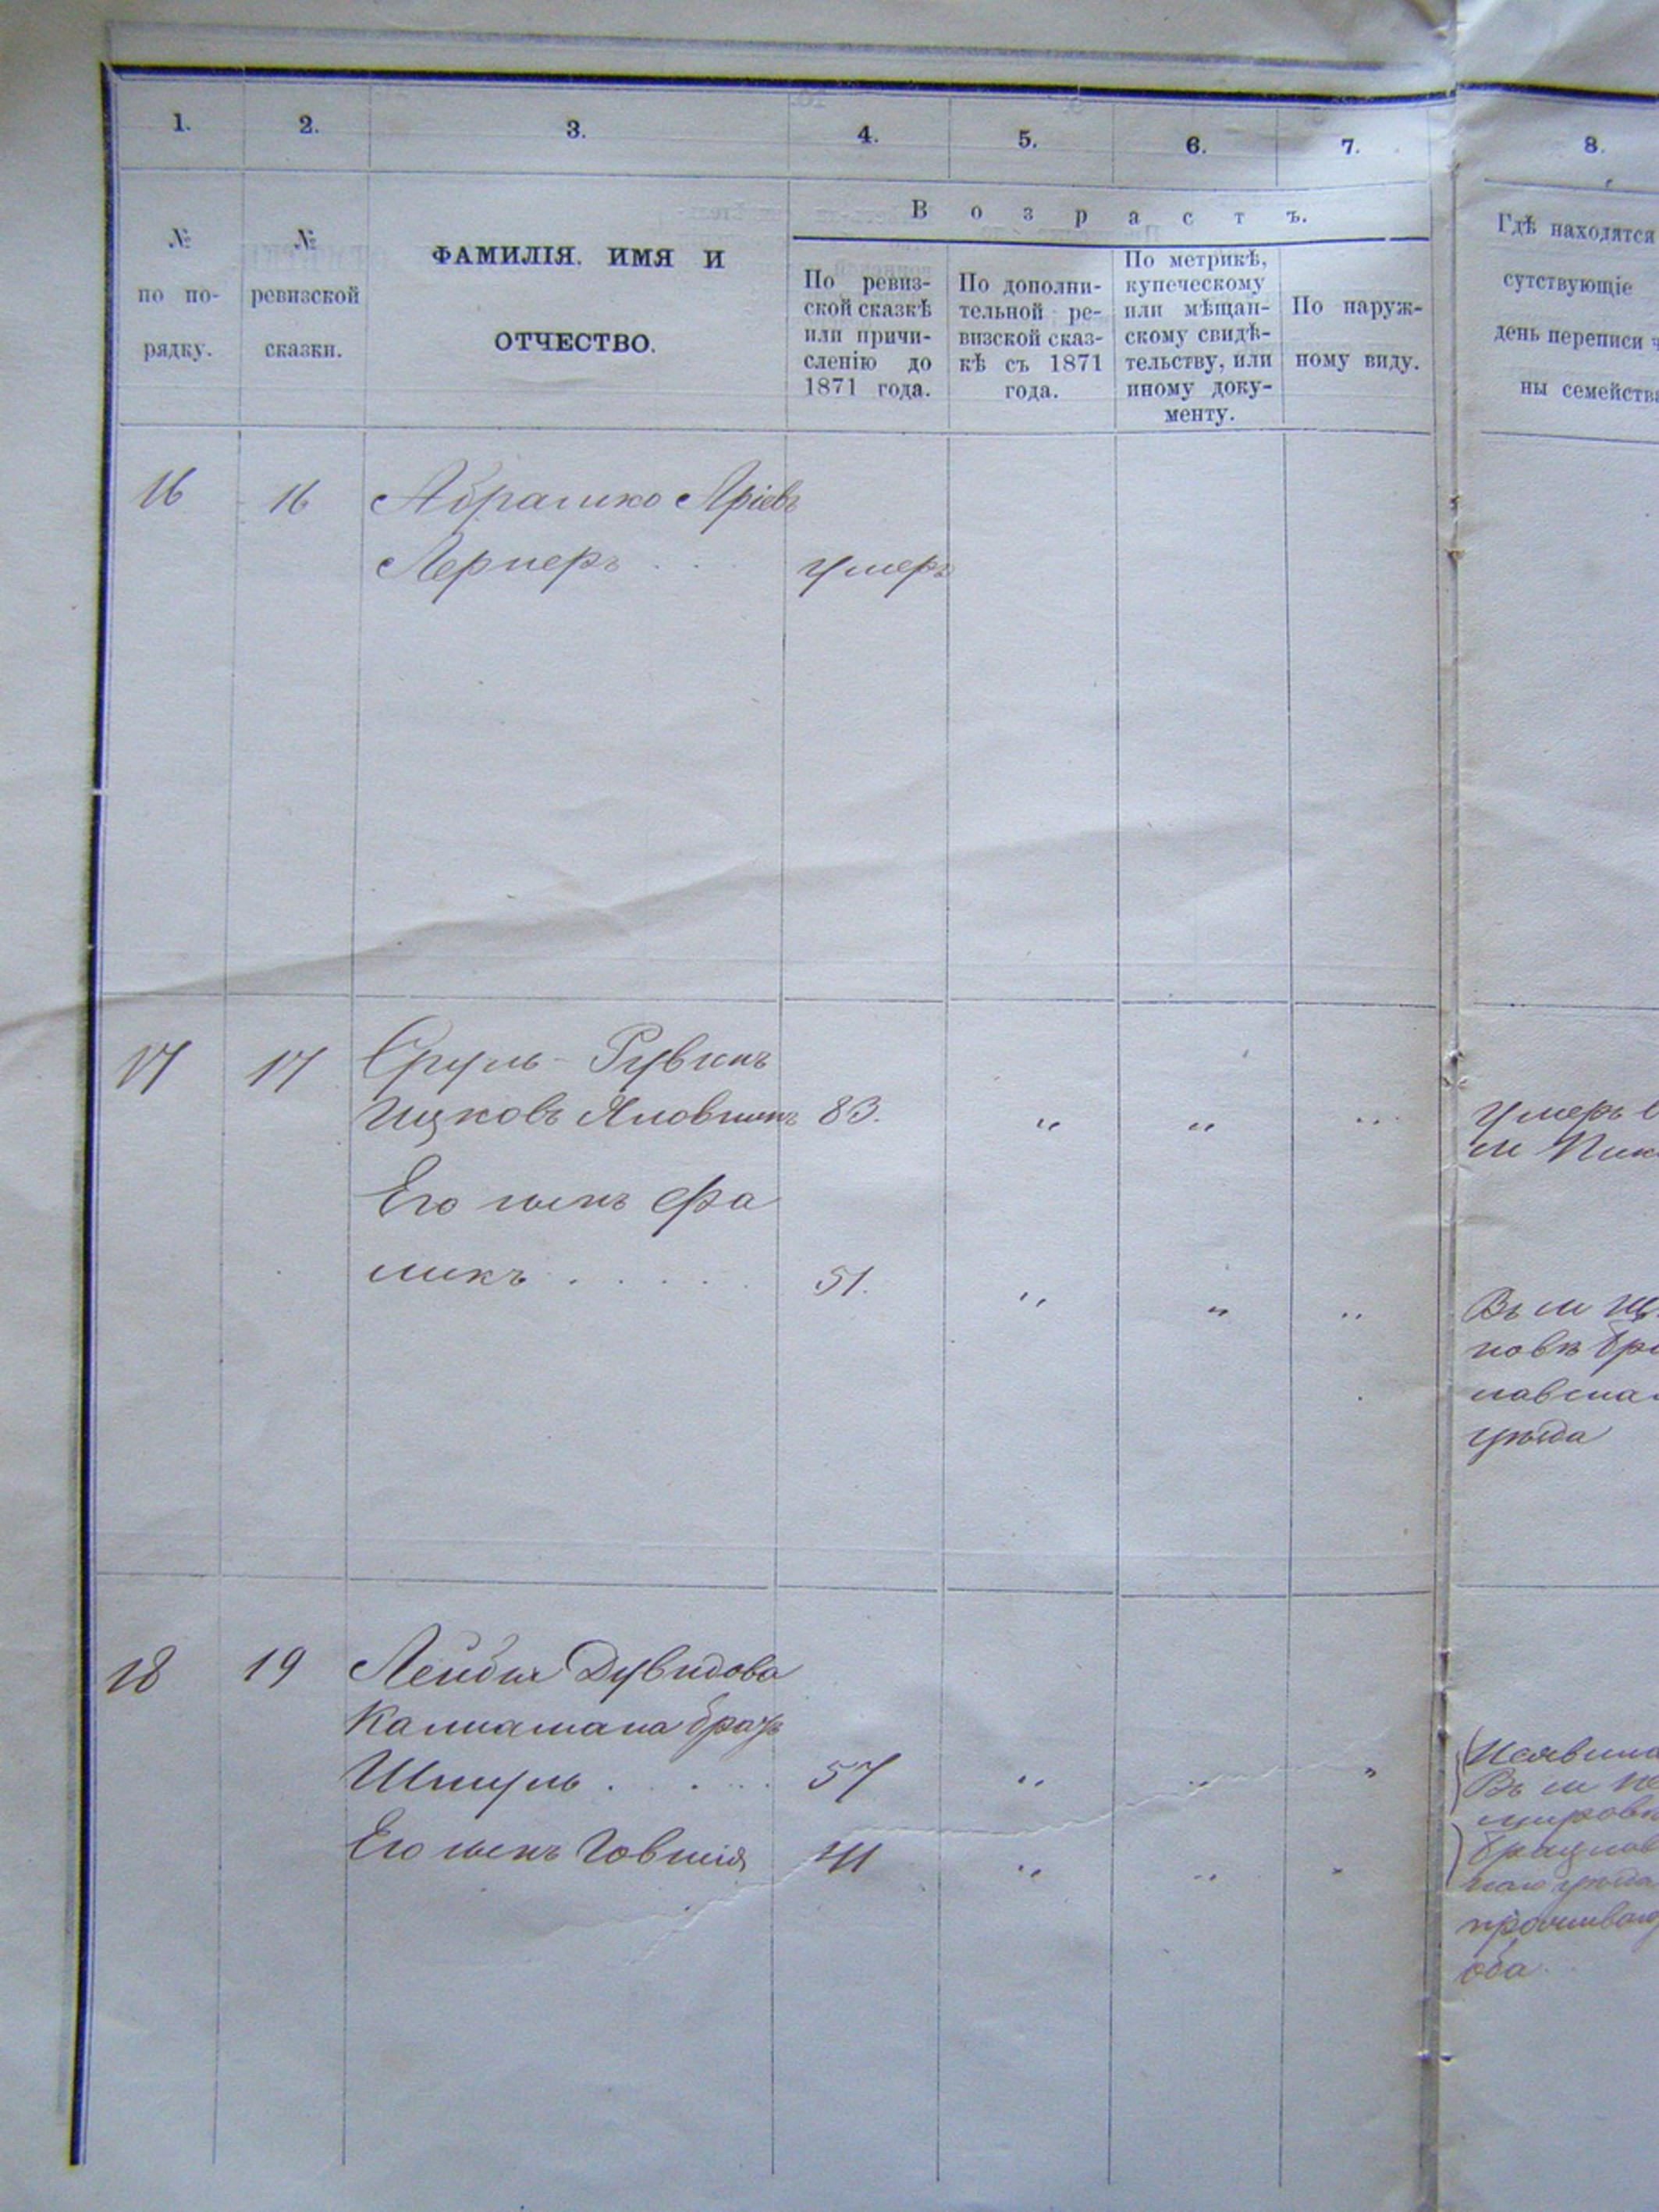 1. 2. 3. 4. 5. 6. 7. 8.
№ по по- рядку.
№ ревизской сказки.
ФАМИЛІЯ. ИМЯ И
ОТЧЕСТВО.
Возрастъ.
По ревиз-
ской сказкѣ
или причи-
сленію до
1871 года.
По дополни-
тельной ре-
визской сказ-
кѣ съ 1871
года.
По метрикѣ,
купеческому
или мѣщан-
скому свидѣ-
тельству, или
иному доку-
менту.
По наруж-
ному виду.
Гдѣ находятся
сутствующіе
день переписи ч
ны семейства
16 16 Абрамко Аріевъ
Лернеръ . . . умеръ
17 17 Сруль - Рувинъ
Ицковъ Яловшикъ 83. " " "
умеръ
Его сынъ Фра
микъ . . . . . 51. " " "
Въ м
уѣзда
18 19 Лейбы Дувидова
Калиамана братъ
Шмуль . . . . 57 " " "
Его сынъ Іовшія 41 " " "
Въ м
оба.